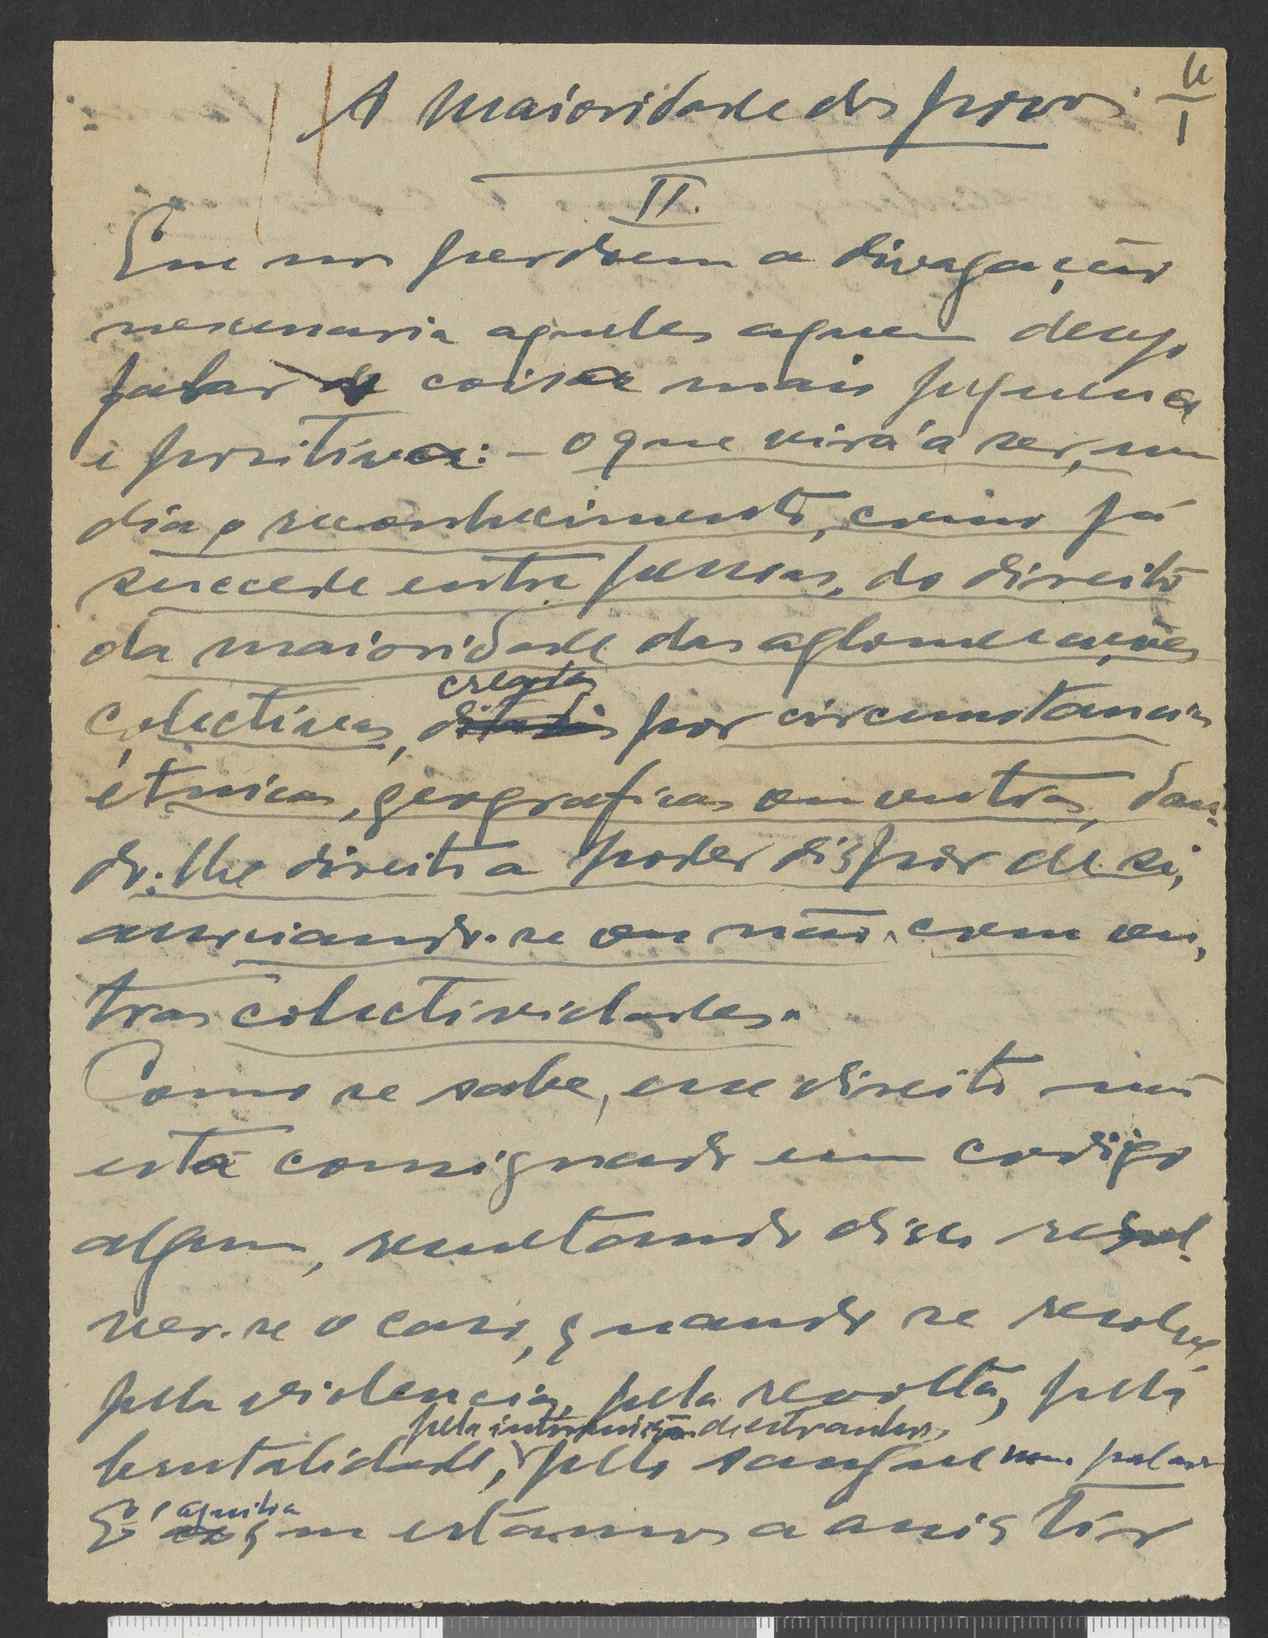 A Maioridade dos povos
II
I
II.
Que nos perdoem a divagação
necessaria aqueles aquem deve,
falar de coisa mais pequena
e positiva: — o que virá a ser, um
dia, o reconhecimento, como já
sucede entre pessoas, do direito
da maioridade das aglomerações
creadas
colectivas, por circumstancias
étnicas, geograficas ou outras, dan-
do-lhe direito a poder dispôr de si,
associando-se ou não, com ou-
tras colectividades.
Como se sabe, esse direito não
está consignado em codigo
algum, resultando disso resol-
ver-se o caso, quando se resolve,
pela violencia, pela revolta, pela
pela intromissão de estranhos,
brutalidade, pelo sangue
aquilo
E' a q̃ m estamos a assistir